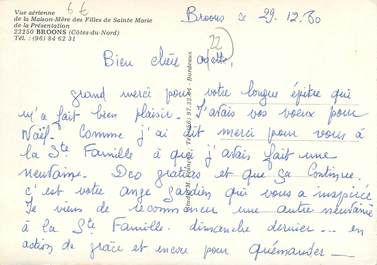 Vue aérienne
de la Maison-Mère des Filles de Sainte Marie
de la Présentation
22250 BROONS (Côtes-du-Nord)
Tél. : (96) 84 62 31
6 €
Broons ce 29.12.80
22
Bien chère Odette,
grand merci pour votre longue épître qui
m'a fait bien plaisir. J'avais vos voeux pour
Noël. Comme j'ai dit merci pour vous à
la Ste Famille à qui j'avais fait une
neuvaine. Deo gratias et que ça continue.
c'est votre ange gardien qui vous a inspirée
Je viens de recommencer une autre neuvaine
à la Ste Famille. dimanche dernier... en
action de grâce et encore pour quémander —